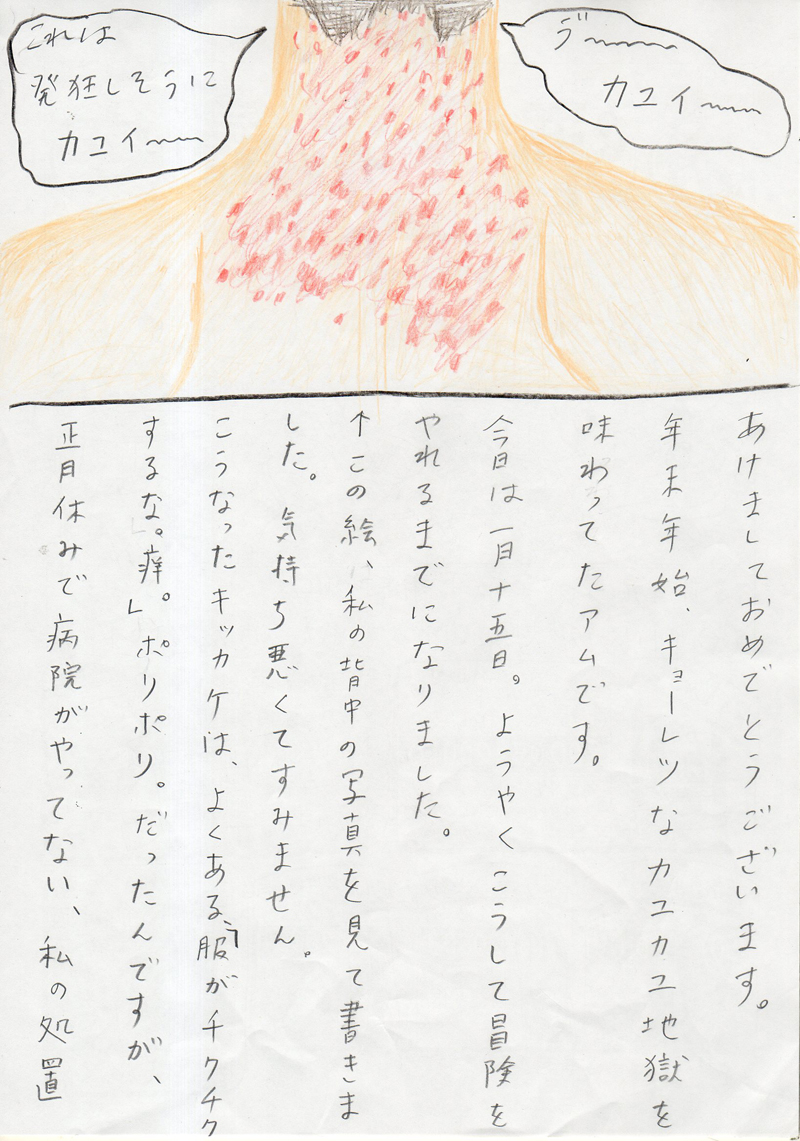 これは
発狂しそうに
カユイ〜〜
ヴ〜〜〜
カユイ〜〜
あけましておめでとうございます。
年末年始、キョーレツなカユカユ地獄を
味わってたアムです。
今日は一月十五日。ようやくこうして冒険を
やれるまでになりました。
↑この絵、私の背中の写真を見て書きま
した。気持ち悪くてすみません。
こうなったキッカケは、よくある、「服がチクチク
するな。痒。」ポリポリ。だったんですが、
正月休みで病院がやってない、私の処置